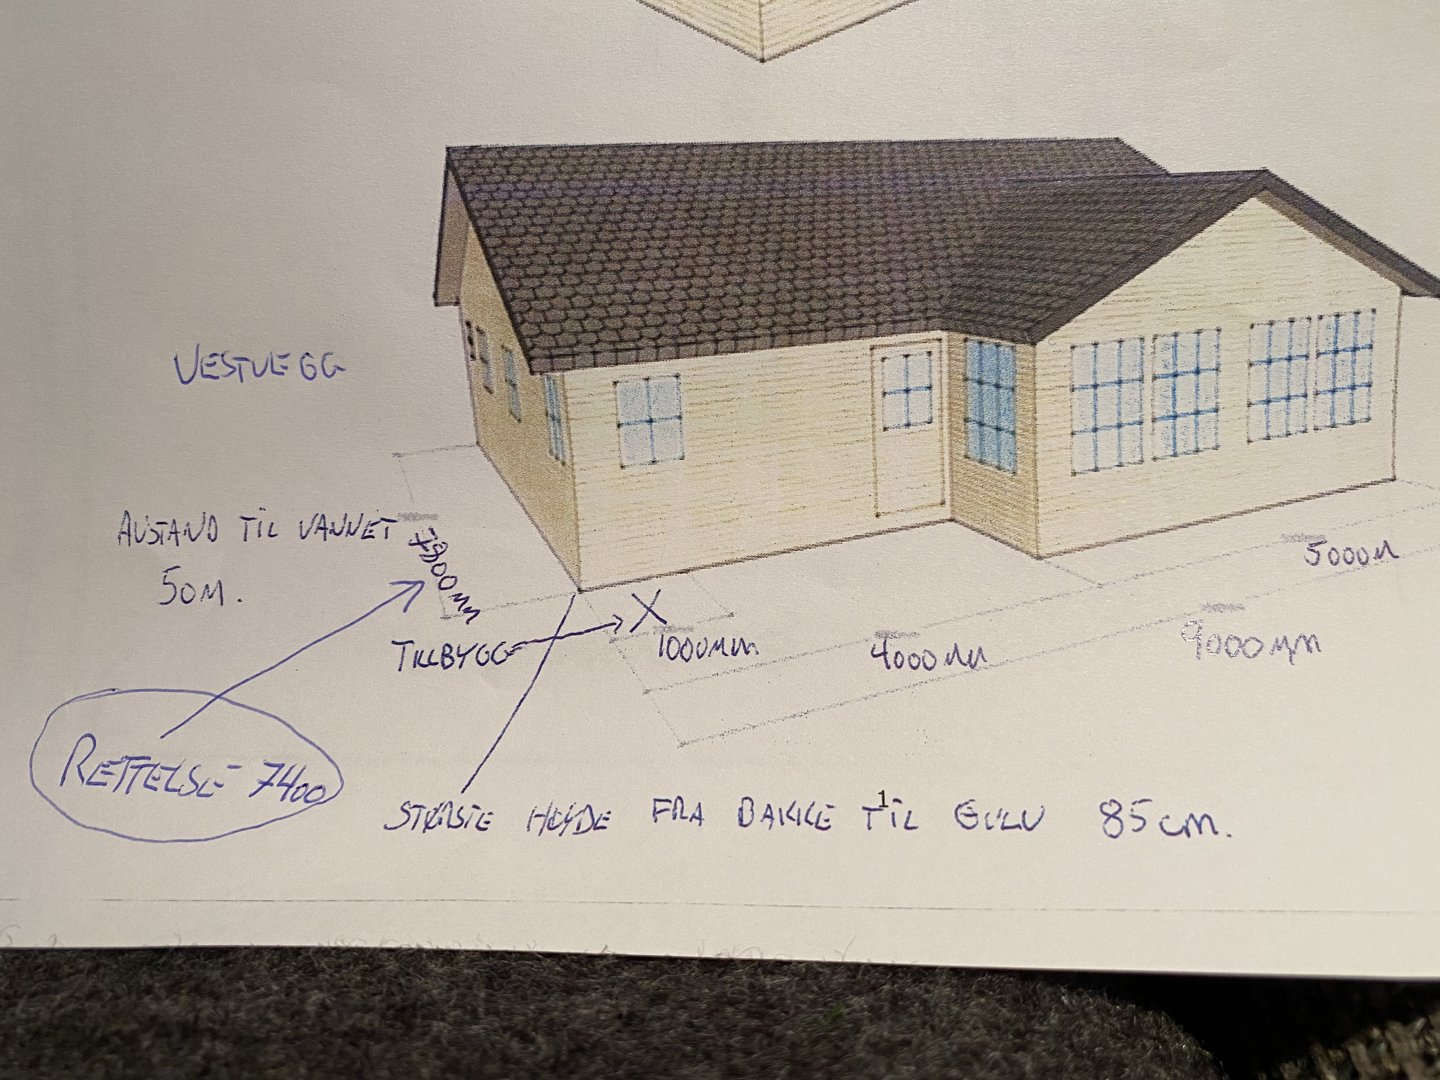 VESTVEGG
AVSTAND TIL VANNET
50M.
7800mm
TILLBYGG
X
1000mm
4000mm
5000m
9000mm
RETTELSE 7400
STØRSTE HØYDE FRA BAKKE TIL GULV 85cm.
1